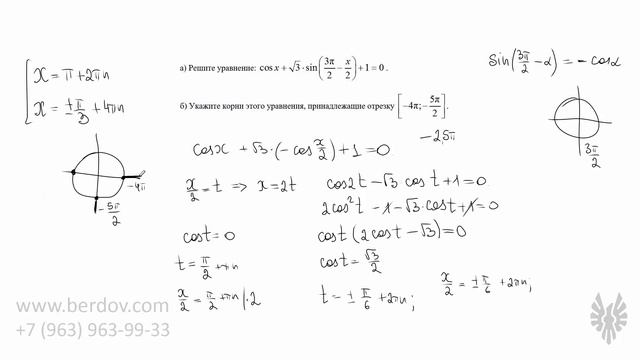 а) Решите уравнение: cos x + √3 · sin(3π/2 − x/2) + 1 = 0 .
б) Укажите корни этого уравнения, принадлежащие отрезку [−4π; −5π/2].
sin(3π/2 − α) = − cos α
3π/2
x = π + 2πn
x = ± π/3 + 4πn
−4π
−5π/2
−2,5π
cos x + √3 · (− cos x/2) + 1 = 0
x/2 = t ⇒ x = 2t
cos 2t − √3 cos t + 1 = 0
2cos² t − 1 − √3 · cos t + 1 = 0
cos t = 0
cos t (2 cos t − √3) = 0
t = π/2 + πn
cos t = √3/2
x/2 = π/2 + πn | · 2
t = ± π/6 + 2πn;
x/2 = ± π/6 + 2πn;
www.berdov.com
+7 (963) 963-99-33